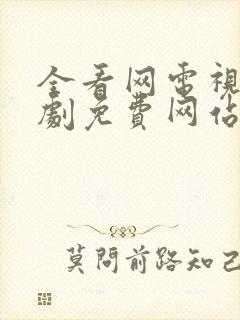 全看网電視
劇免費网佔
莫問前路知己